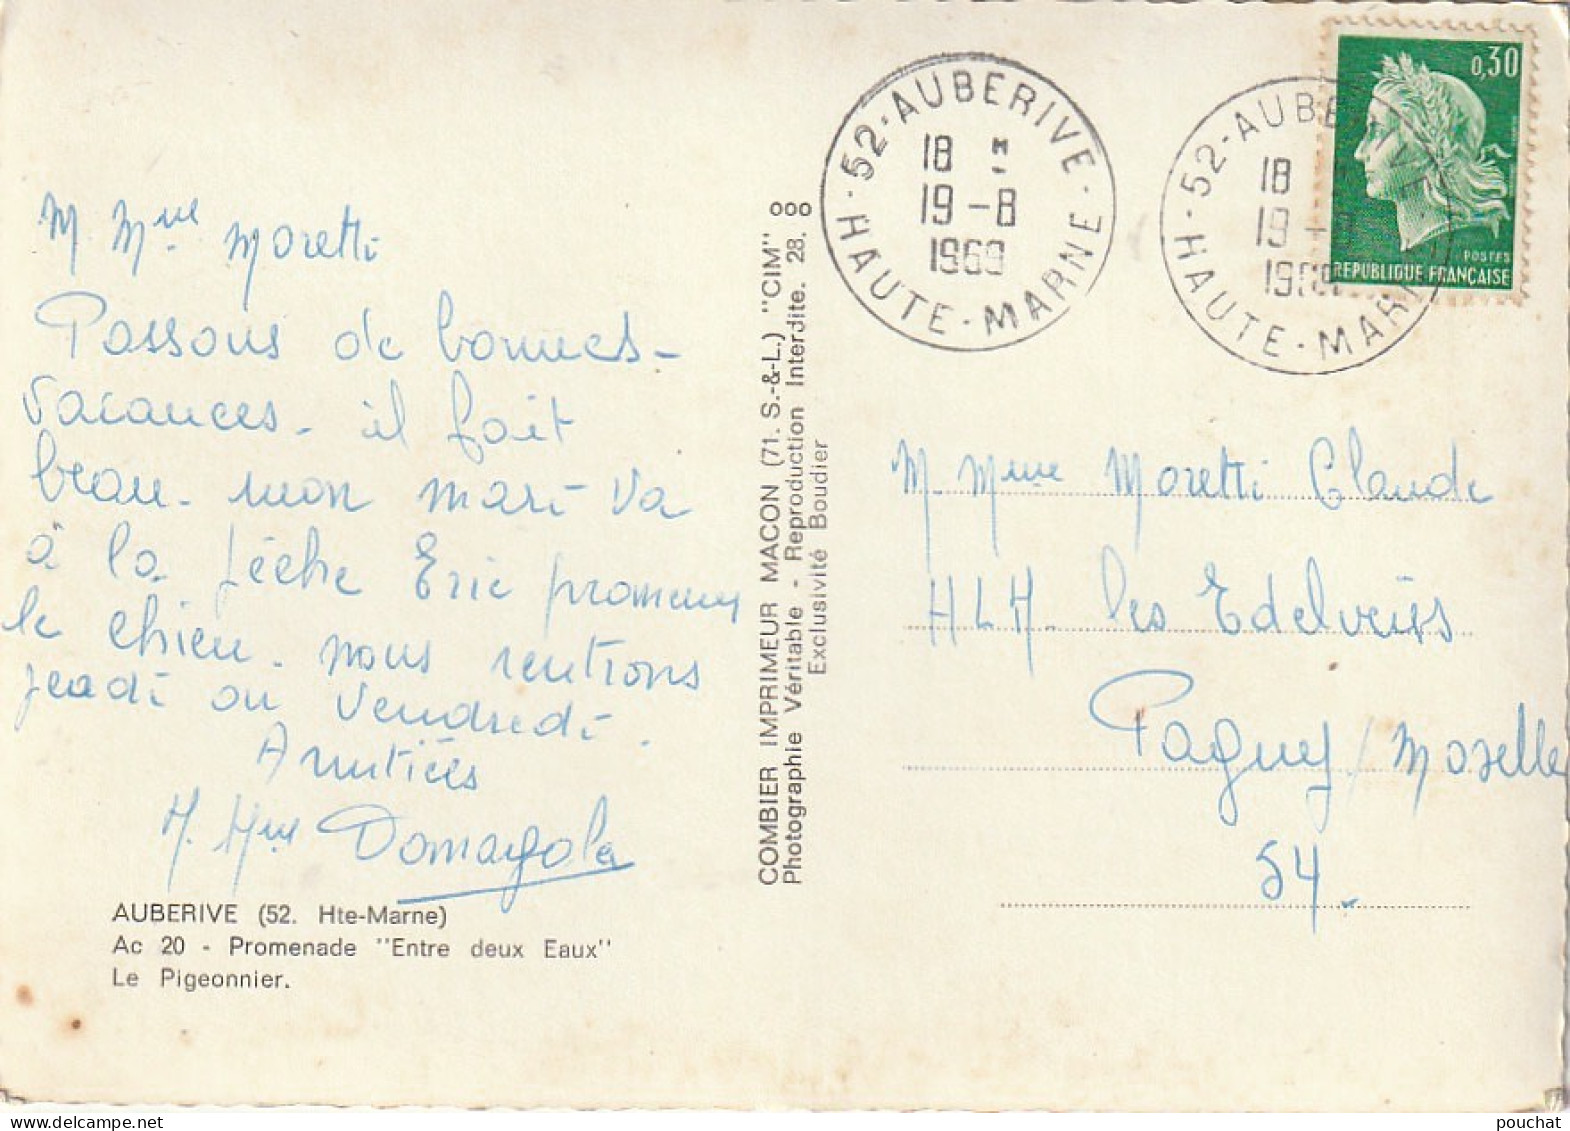 M. Mme Moretti
Passons de bonnes-
vacances - il fait
beau - mon mari va
à la pêche Eric promeny
le chien - nous rentrons
jeudi ou vendredi.
Amitiées
M. Mme Domargola
AUBERIVE (52. Hte-Marne)
Ac 20 - Promenade "Entre deux Eaux"
Le Pigeonnier.
COMBIER IMPRIMEUR MACON (71. S.-&-L.) "CIM"
Photographie Véritable - Reproduction Interdite. 28.
Exclusivité Boudier
52 - AUBERIVE
18 H
19 - 8
1969
HAUTE - MARNE
52 - AUBERIVE
18
19 -
HAUTE - MARNE
0,30
POSTES
REPUBLIQUE FRANÇAISE
M. Mme Moretti Claude
HLM. les Edelveiss
Pagny / Moselle
54.
pouchat